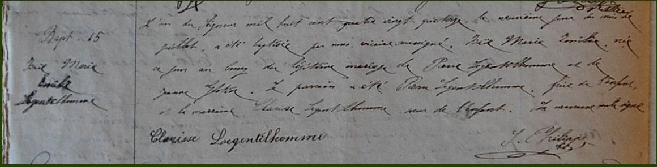 Bapt. 15
Marie
Emilie
Legentilhomme
L'an du Seigneur mil huit cent quatre vingt quatorze le neuvième jour du mois de
juillet, a été baptisée par nous vicaire soussigné, Marie Emilie, née
ce jour en bourg du légitime mariage de Pierre Legentilhomme et de
Jeanne Le parrain a été Pierre Legentilhomme, frère de l'enfant,
et la marraine Clarisse Legentilhomme soeur de l'enfant. La marraine seule signe
Clarisse Legentilhomme